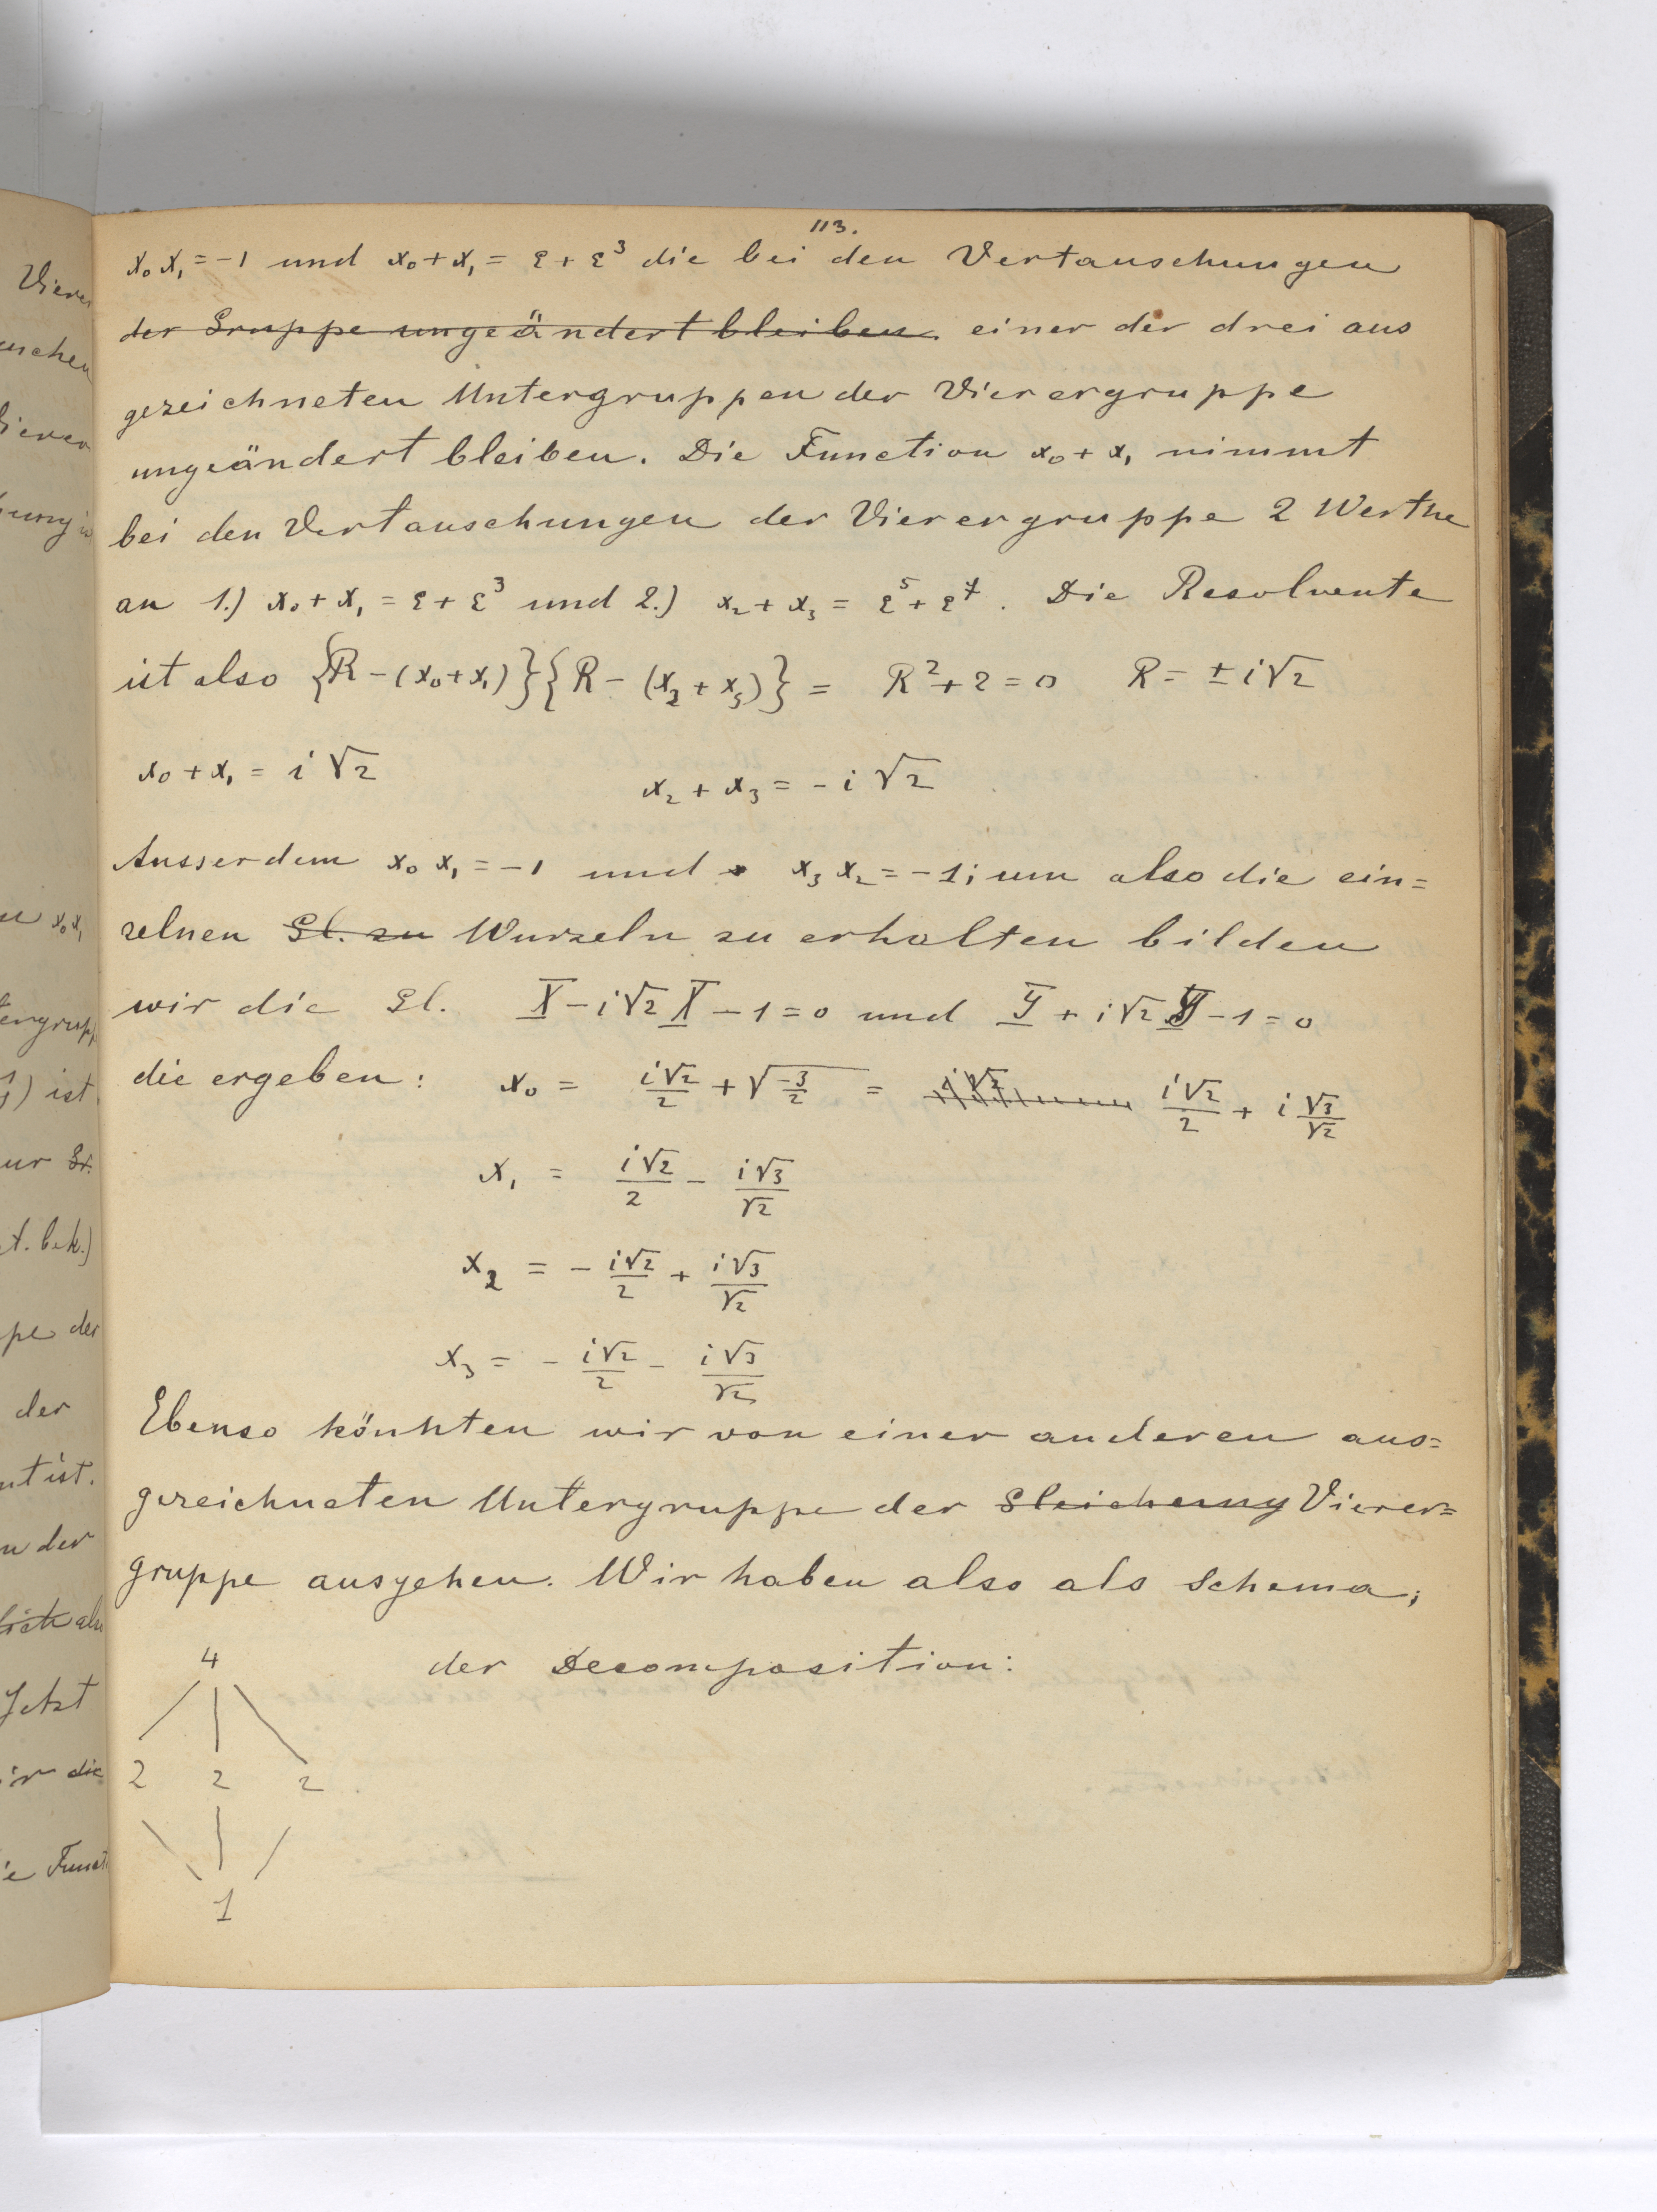 113.
x₀x₁ = -1 und x₀ + x₁ = ε + ε³ die bei den Vertauschungen
der Gruppe ungeändert bleiben. einer der drei aus
gezeichneten Untergruppen der Vierergruppe
ungeändert bleiben. Die Function x₀ + x₁ nimmt
bei den Vertauschungen der Vierergruppe 2 Werthe
an 1.) x₀ + x₁ = ε + ε³ und 2.) x₂ + x₃ = ε⁵ + ε⁷. Die Resolvente
ist also {R - (x₀ + x₁)}{R - (x₂ + x₃)} = R² + 2 = 0 R = ± i√2
x₀ + x₁ = i√2 x₂ + x₃ = - i√2
Ausserdem x₀ x₁ = -1 und x₃ x₂ = -1; um also die ein=
zelnen Gl. zu Wurzeln zu erhalten bilden
wir die Gl. X - i√2 X - 1 = 0 und Y + i√2 Y - 1 = 0
die ergeben: x₀ = i√2/2 + √(-3/2) = i√2/2 + i √3/√2
x₁ = i√2/2 - i√3/√2
x₂ = - i√2/2 + i√3/√2
x₃ = - i√2/2 - i√3/√2
Ebenso könnten wir von einer anderen aus=
gezeichneten Untergruppe der Gleichung Vierer=
gruppe ausgehen. Wir haben also als Schema,
der Decomposition:
4
2 2 2
1
Vierer
uschen
Vierer
x₀x₁
tengrupp
) ist
ur Gr.
t. bek.)
pe der
der
nt ist.
n der
also
Jetzt
ir die
ie Funct